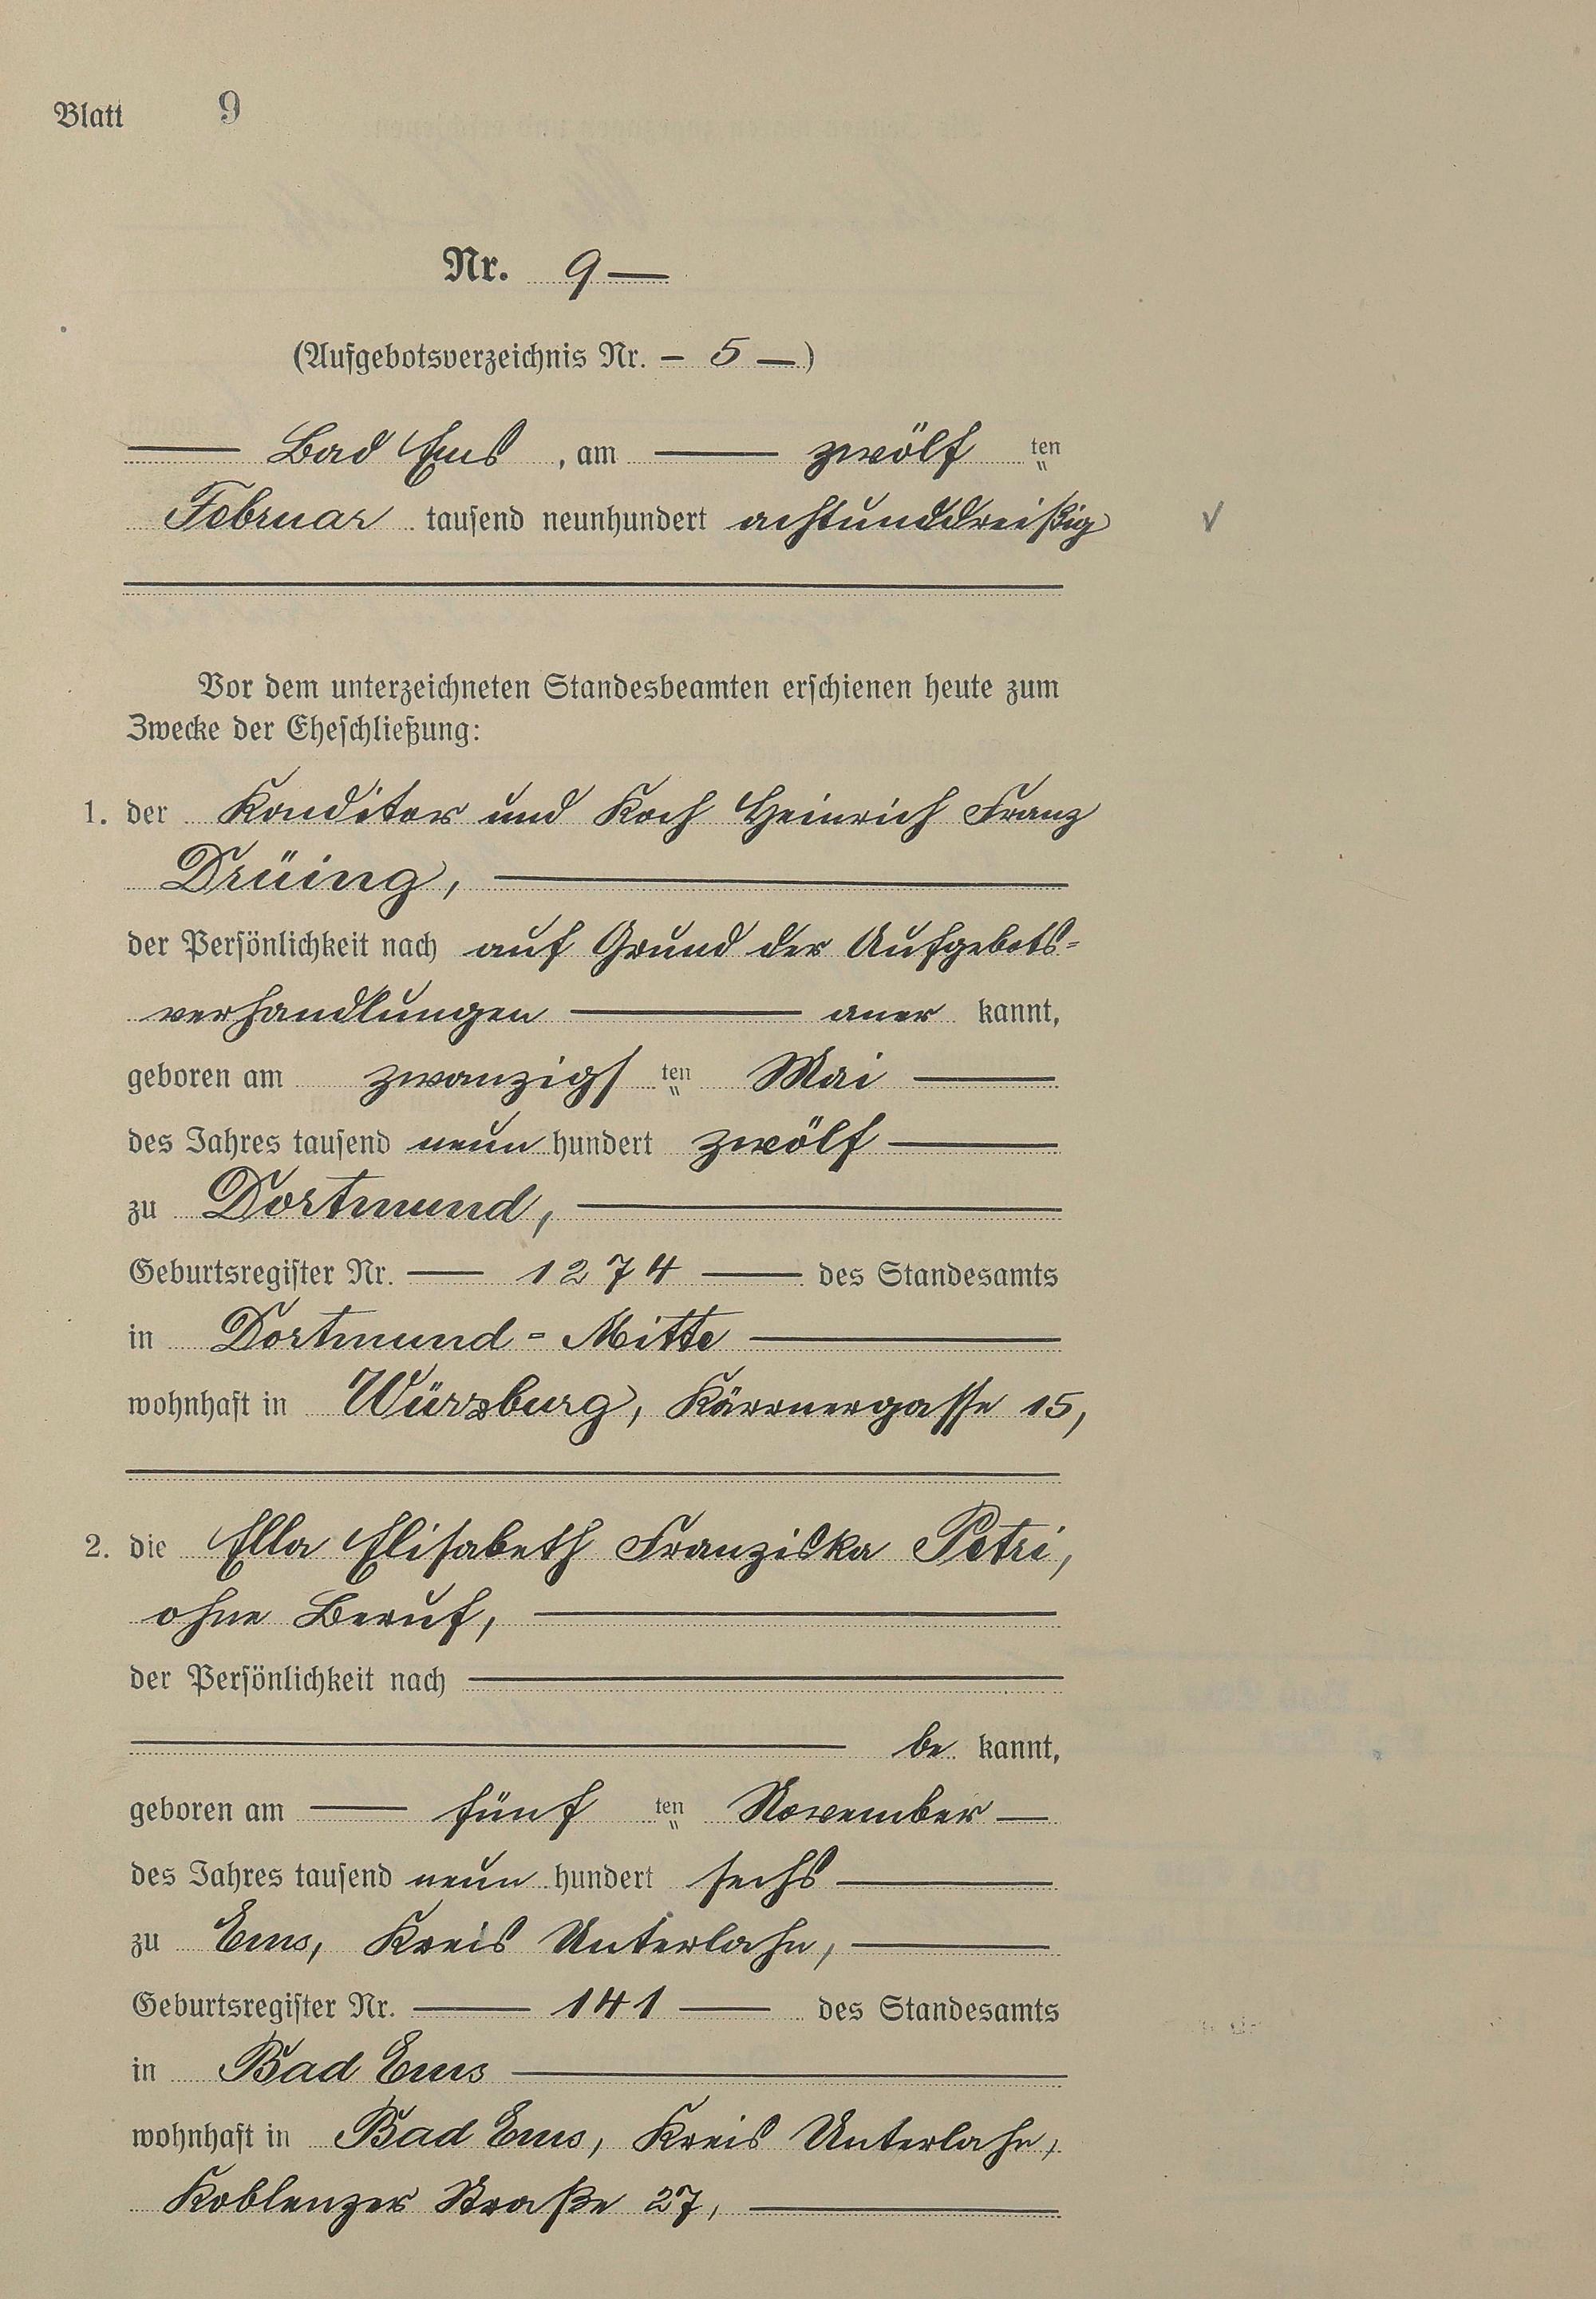 Blatt 9
Nr. 9 —
(Aufgebotsverzeichnis Nr. – 5 —)
— Bad Ems, am — zwölf ten
Februar tausend neunhundert achtunddreißig
Vor dem unterzeichneten Standesbeamten erschienen heute zum
Zwecke der Eheschließung:
1. der Konditor und Koch Heinrich Franz
Drüing, —
der Persönlichkeit nach auf Grund der Aufgebots=
verhandlungen — aner kannt,
geboren am zwanzigs ten Mai —
des Jahres tausend neun hundert zwölf —
zu Dortmund, —
Geburtsregister Nr. — 1274 — des Standesamts
in Dortmund=Mitte —
wohnhaft in Würzburg, Kärrnergasse 15,
2. die Ella Elisabeth Franziska Petri,
ohne Beruf, —
der Persönlichkeit nach —
— be kannt,
geboren am — fünf ten November —
des Jahres tausend neun hundert sechs —
zu Ems, Kreis Unterlahn, —
Geburtsregister Nr. — 141 — des Standesamts
in Bad Ems —
wohnhaft in Bad Ems, Kreis Unterlahn,
Koblenzer Straße 27, —